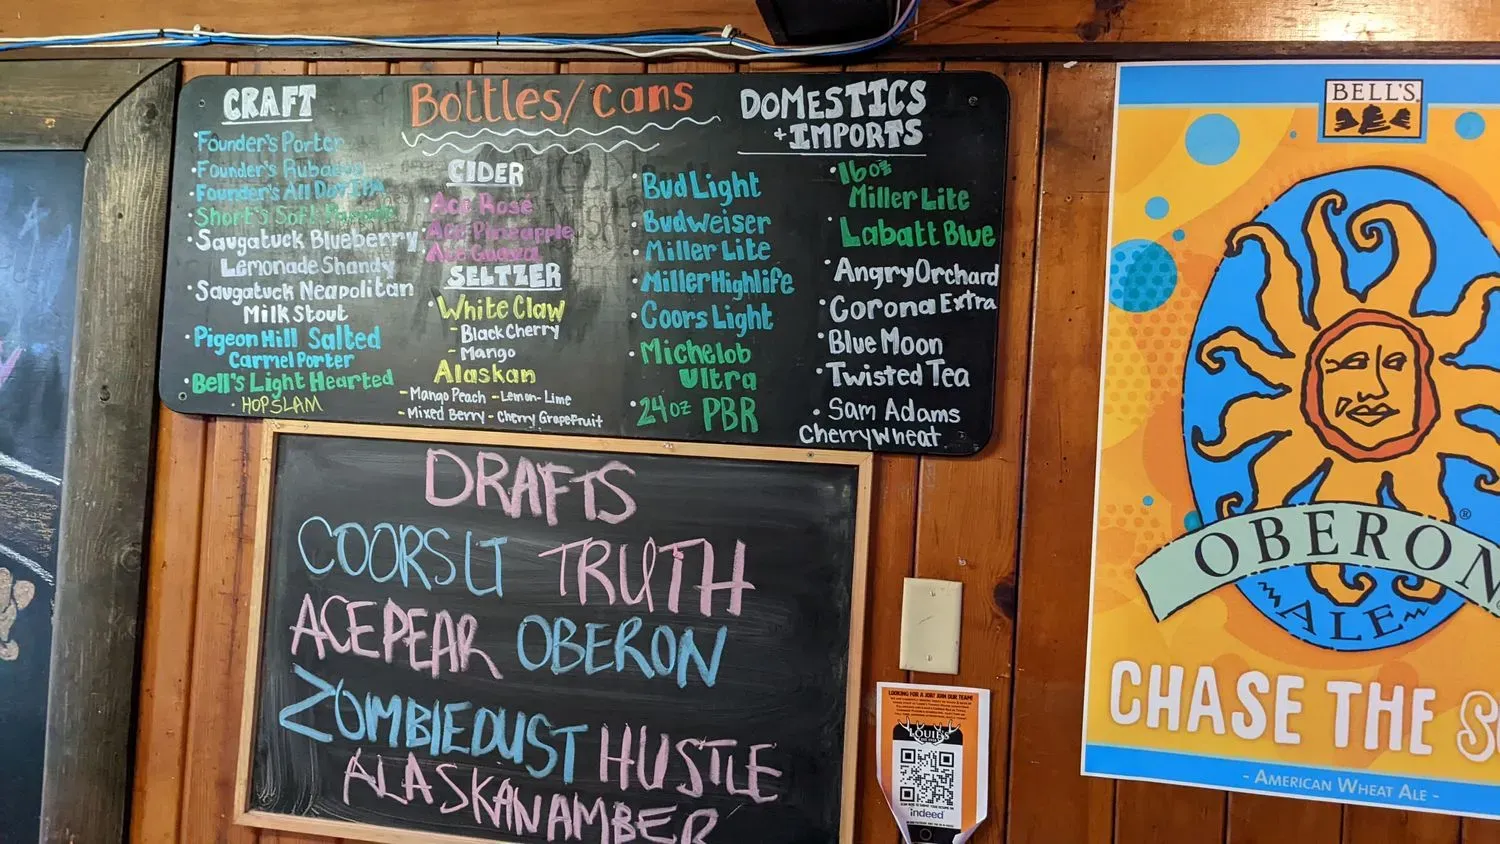 CRAFT
·Founder's Porter
·Founder's Rubaeus
·Founder's All Day IPA
·Short's Soft Parade
·Saugatuck Blueberry
Lemonade Shandy
·Saugatuck Neapolitan
Milk Stout
·Pigeon Hill Salted
Carmel Porter
·Bell's Light Hearted
·HOPSLAM
Bottles/Cans
CIDER
·Ace Rosé
·Ace Pineapple
·Ace Guava
SELTZER
·White Claw
-Black Cherry
-Mango
Alaskan
-Mango Peach -Lemon-Lime
-Mixed Berry -Cherry Grapefruit
DOMESTICS
+IMPORTS
·Bud Light
·Budweiser
·Miller Lite
·Miller Highlife
·Coors Light
·Michelob
Ultra
·24oz PBR
·16oz
Miller Lite
Labatt Blue
·Angry Orchard
·Corona Extra
·Blue Moon
·Twisted Tea
·Sam Adams
Cherry Wheat
DRAFTS
COORS LT TRUTH
ACE PEAR OBERON
ZOMBIE DUST HUSTLE
ALASKAN AMBER
LOOKING FOR A JOB? JOIN OUR TEAM!
LOUIE'S
indeed
BELL'S
OBERON
®
ALE
CHASE THE
- AMERICAN WHEAT ALE -